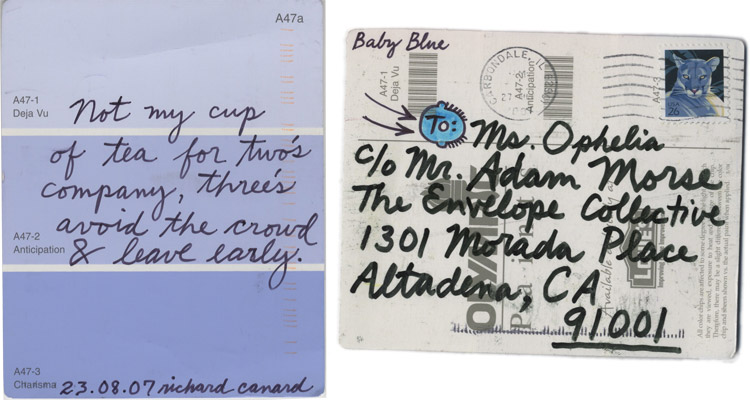 A47a
A47-1
Deja Vu
Not my cup
of tea for two's
company, three's
avoid the crowd
& leave early.
A47-2
Anticipation
A47-3
Charisma
23.08.07 richard canard
Baby Blue
A47-1
Deja Vu
CARBONDALE, IL
A47-2
Anticipation
A47-3
26
To:
Ms. Ophelia
c/o Mr. Adam Morse
The Envelope Collective
1301 Morada Place
Altadena, CA
91001